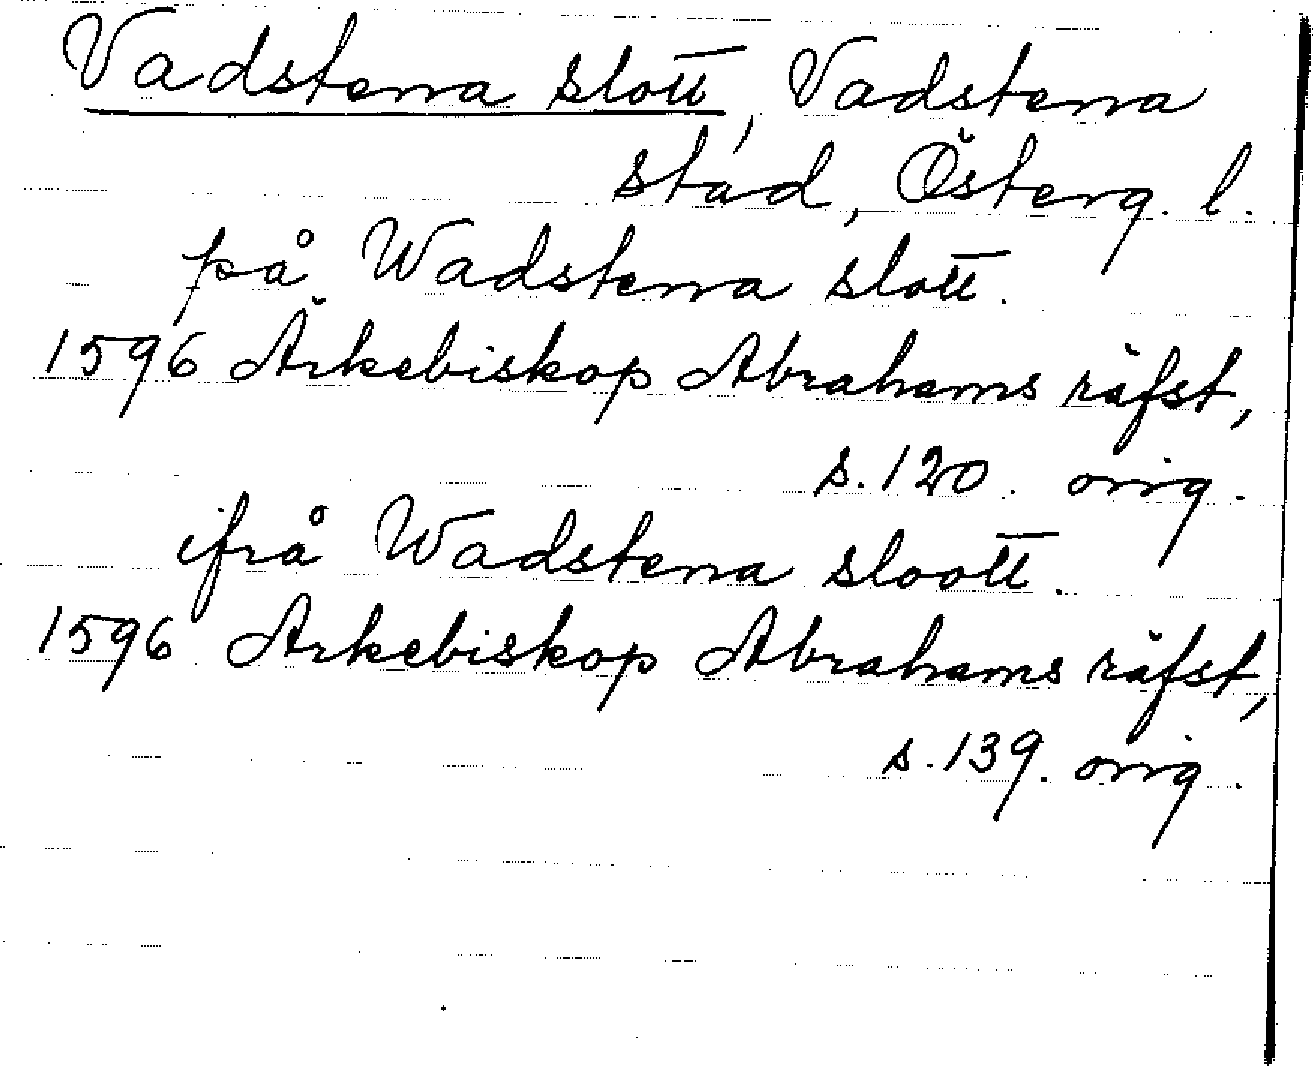 Vadstena slott, Vadstena
stad, Österg. l.
på Wadstena slott.
1596 Ärkebiskop Abrahams räfst,
s. 120. orig.
ifrå Wadstena sloott.
1596 Arkebiskop Abrahams räfst,
s. 139. orig.